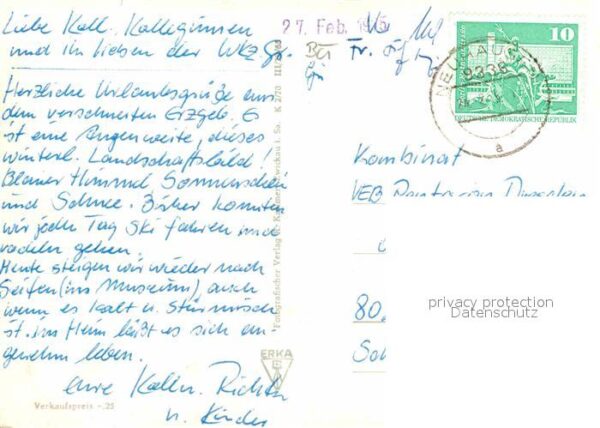 Liebe Koll. Kolleginnen
und ihr Lieben der WKz Gr.
Herzliche Urlaubsgrüße aus
dem verschneiten Erzgeb. Es
ist eine Augenweite, dieses
winterl. Landschaftsbild!
Blauer Himmel Sonnenschein
und Schnee. Bisher konnten
wir jeden Tag Ski fahren und
rodeln gehen.
Heute steigen wir wieder nach
Seifen (ins Museum) auch
wenn es kalt u. stürmisch
ist. im Heim läßt es sich an-
genehm leben.
Eure Kolln. Richter
u. Kinder
Verkaufspreis -.25
ERKA
Fotografischer Verlag
27. Feb.
10
DEUTSCHE DEMOKRATISCHE REPUBLIK
9336
a
Kombinat
VEB
80
privacy protection
Datenschutz